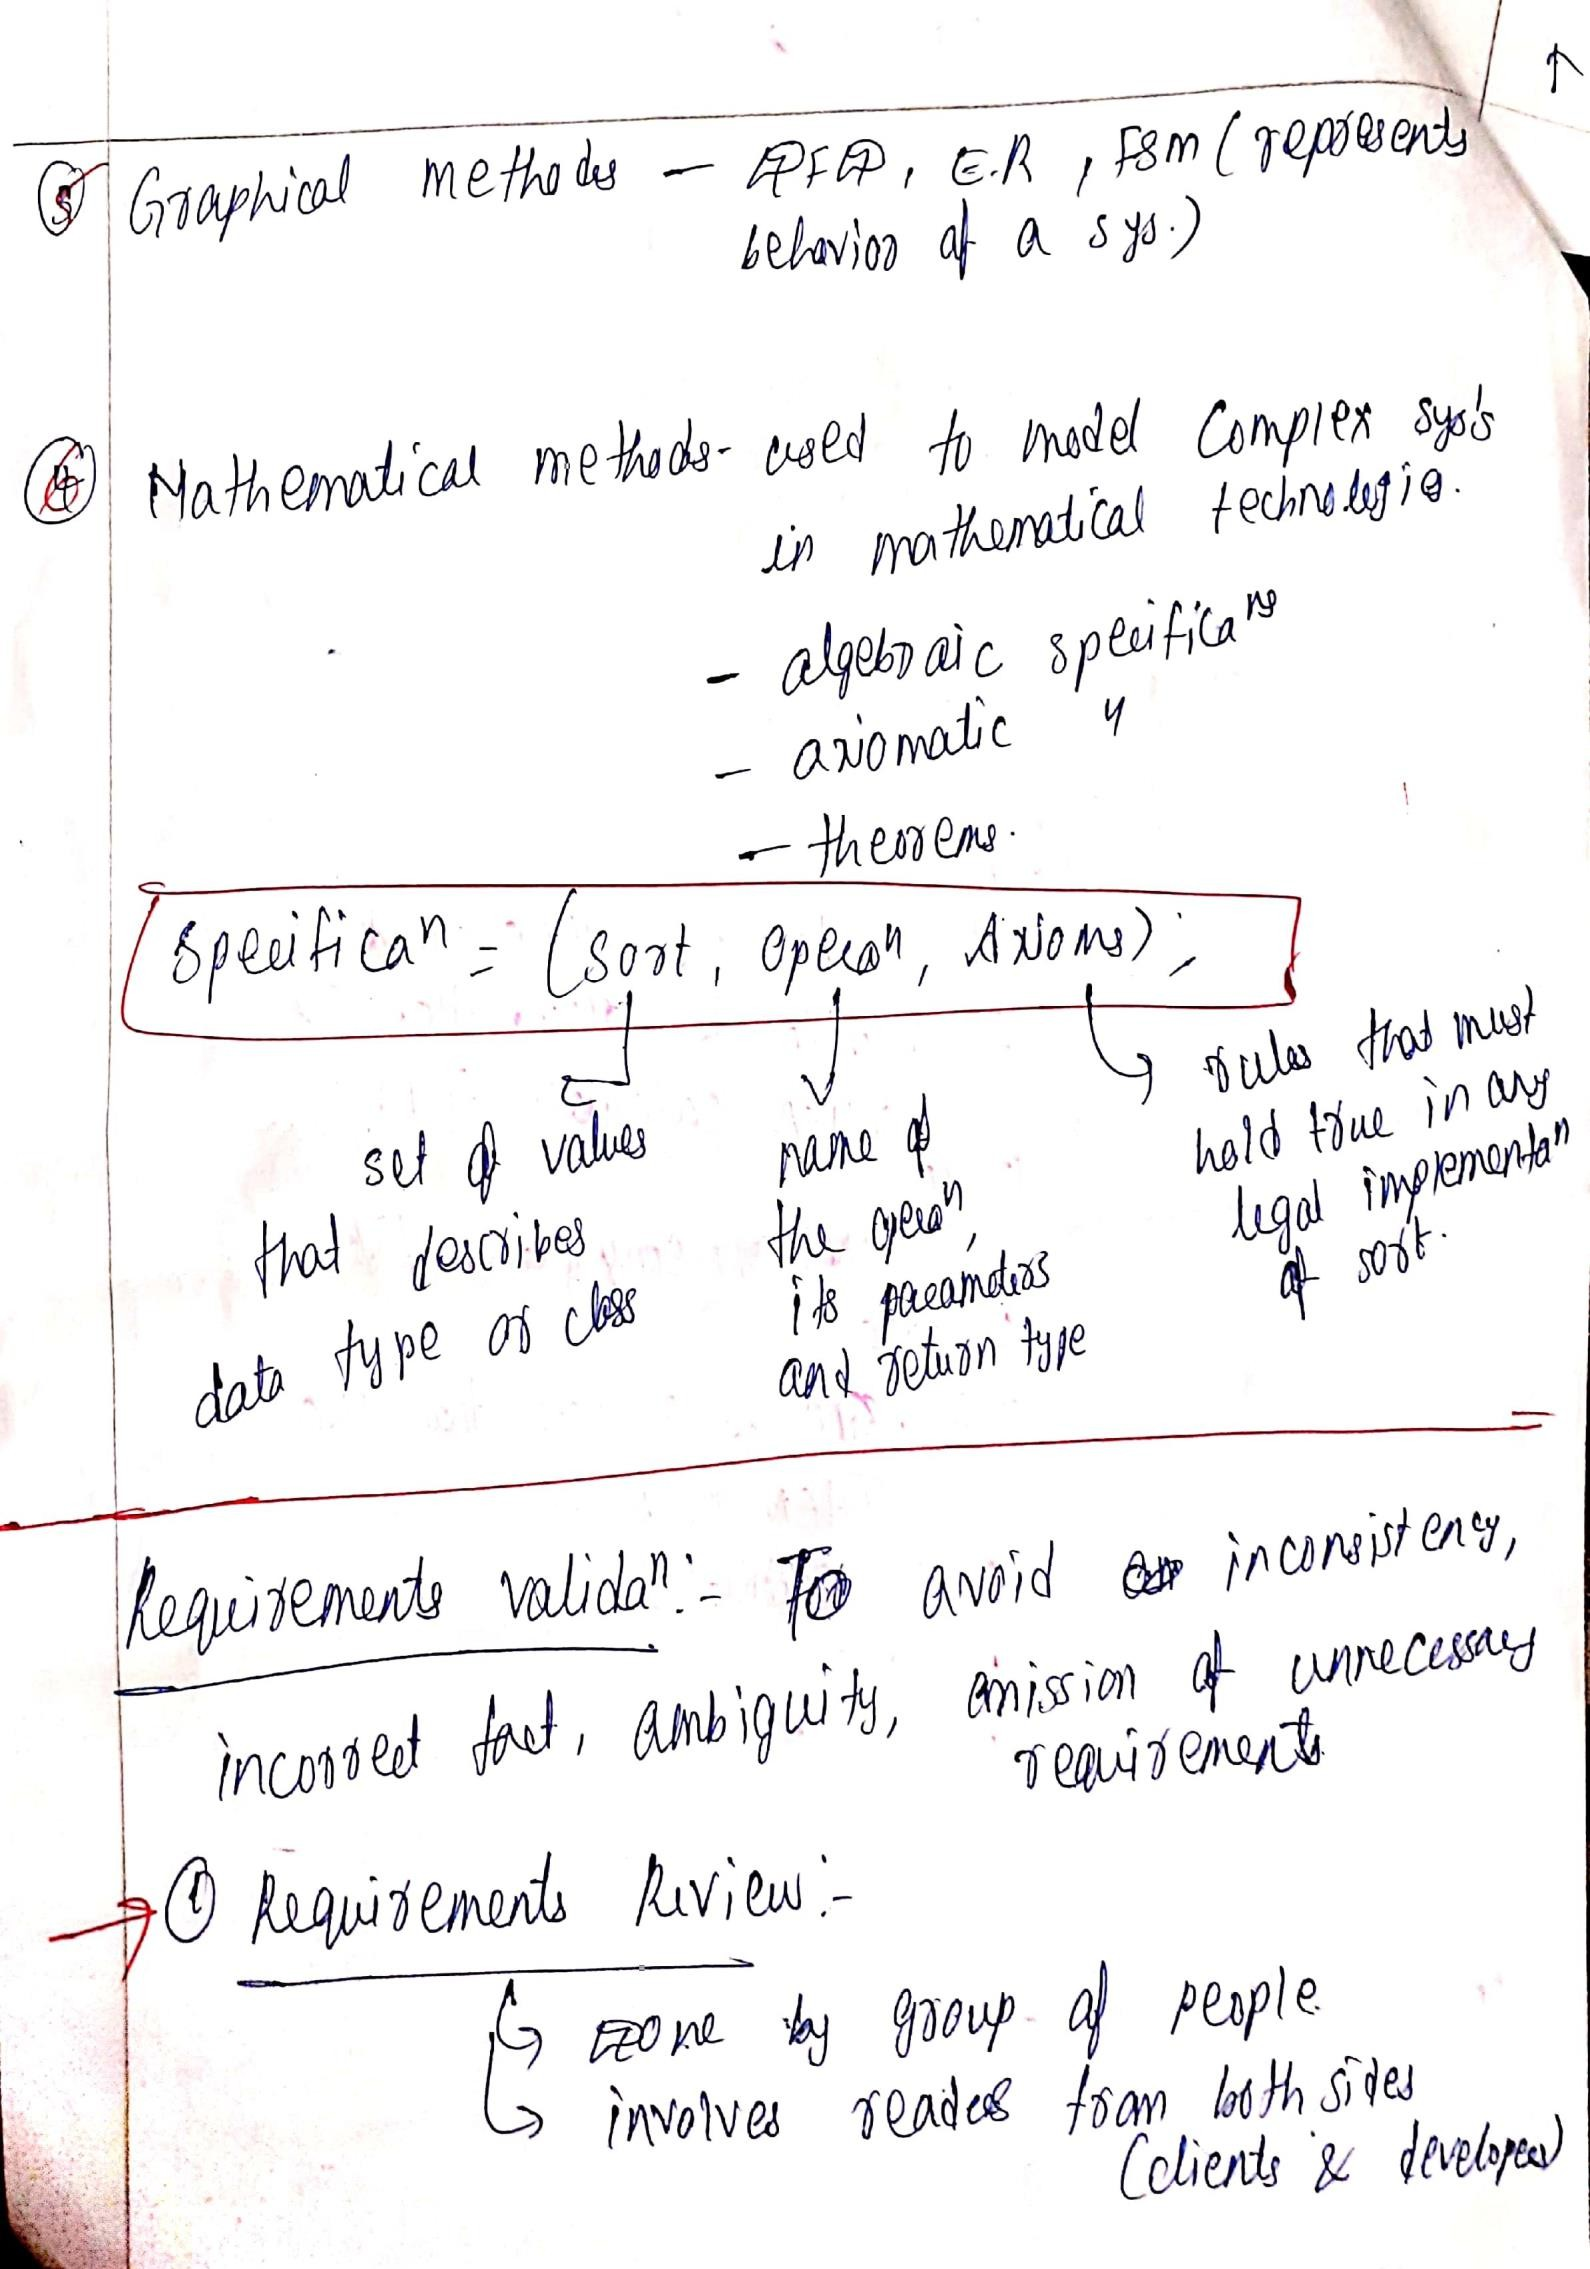 ↑
⑤ Graphical methods – DFD, E.R, FSM (represents
behavior of a sys.)
④ Mathematical methods- used to model Complex sys's
in mathematical technologie.
- algebraic specificaⁿˢ
- axiomatic "
- theorems.
Specificaⁿ = (Sort, Operaⁿ, Axioms);
set of values
that describes
data type or class
name of
the operaⁿ,
its parameters
and return type
rules that must
hold true in any
legal implementaⁿ
of sort.
Requirements validaⁿ:- To avoid inconsistency,
incorrect fact, ambiguity, omission of unnecessary
requirements
① Requirements Review:-
↳ Done by group of people
↳ involves readers from both sides
(clients & developers)